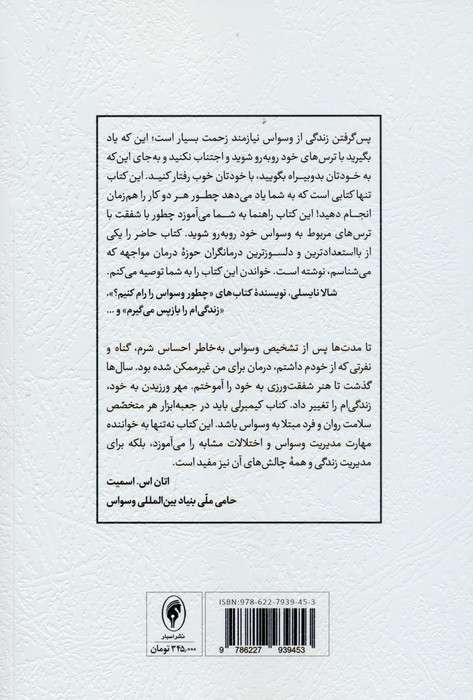 پس‌گرفتن زندگی از وسواس نیازمند زحمت بسیار است؛ این که یاد
بگیرید با ترس‌های خود روبه‌رو شوید و اجتناب نکنید و به‌جای این‌که
به خودتان بدوبیراه بگویید، با خودتان خوب رفتار کنید. این کتاب
تنها کتابی است که به شما یاد می‌دهد چطور هر دو کار را هم‌زمان
انجام دهید! این کتاب راهنما به شما می‌آموزد چطور با شفقت با
ترس‌های مربوط به وسواس خود روبه‌رو شوید. کتاب حاضر را یکی
از بااستعدادترین و دلسوزترین درمانگران حوزهٔ درمان مواجهه که
می‌شناسم، نوشته است. خواندن این کتاب را به شما توصیه می‌کنم.
شالا نایسلی. نویسندهٔ کتاب‌های «چطور وسواس را رام کنیم؟»،
«زندگی‌ام را بازپس می‌گیرم» و ...
تا مدت‌ها پس از تشخیص وسواس به‌خاطر احساس شرم، گناه و
نفرتی که از خودم داشتم، درمان برای من غیرممکن شده بود. سال‌ها
گذشت تا هنر شفقت‌ورزی به خود را آموختم. مهر ورزیدن به خود،
زندگی‌ام را تغییر داد. کتاب کیمبرلی باید در جعبه‌ابزار هر متخصّص
سلامت روان و فرد مبتلا به وسواس باشد. این کتاب نه‌تنها به خواننده
مهارت مدیریت وسواس و اختلالات مشابه را می‌آموزد، بلکه برای
مدیریت زندگی و همهٔ چالش‌های آن نیز مفید است.
اتان اس. اسمیت
حامی ملّی بنیاد بین‌المللی وسواس
ISBN: 978-622-7939-45-3
9 786227 939453
نشر اسبار
۳۴۵,۰۰۰ تومان